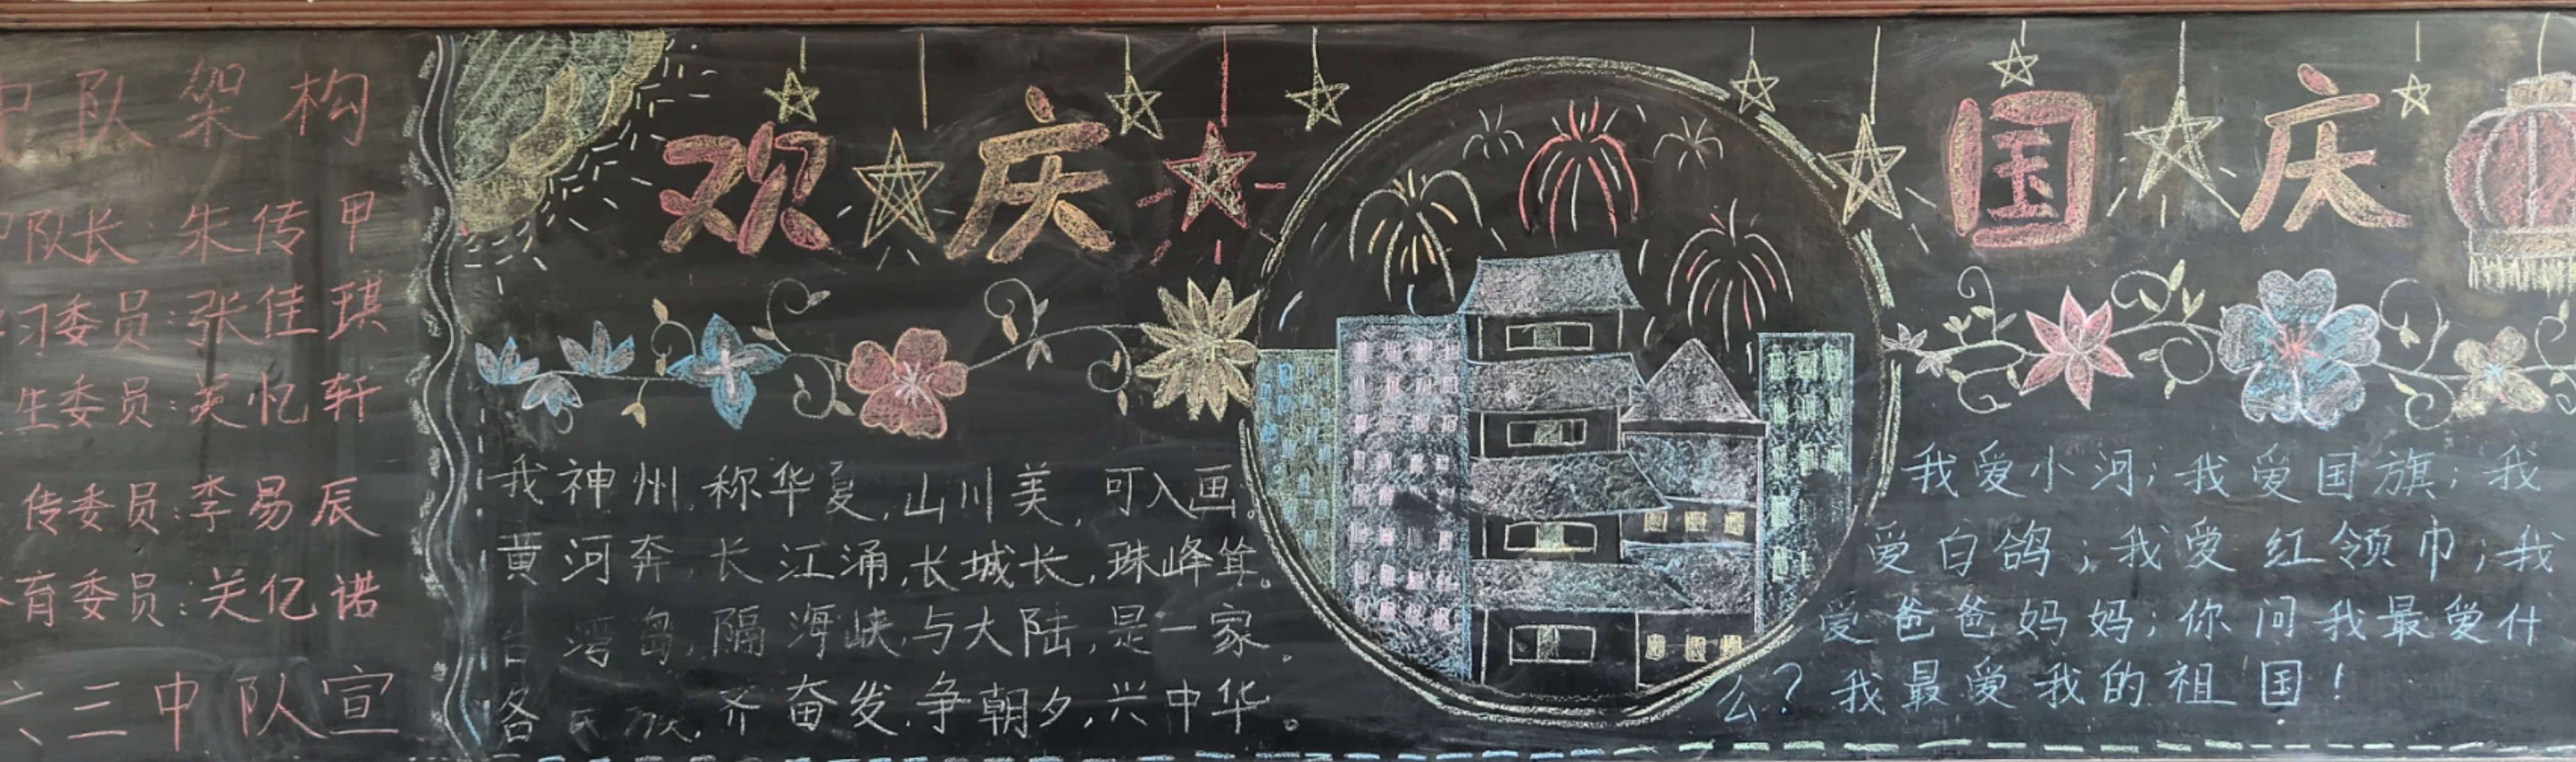 中队架构
中队长:朱传甲
习委员:张佳琪
生委员:关忆轩
传委员:李易辰
体育委员:关亿诺
六三中队宣
欢庆
国庆
我神州,称华夏,山川美,可入画。
黄河奔,长江涌,长城长,珠峰
台湾岛,隔海峡,与大陆,是一家。
各民族,齐奋发,争朝夕,兴中华。
我爱小河;我爱国旗;我
爱白鸽;我爱红领巾;我
爱爸爸妈妈;你问我最爱什
么?我最爱我的祖国!